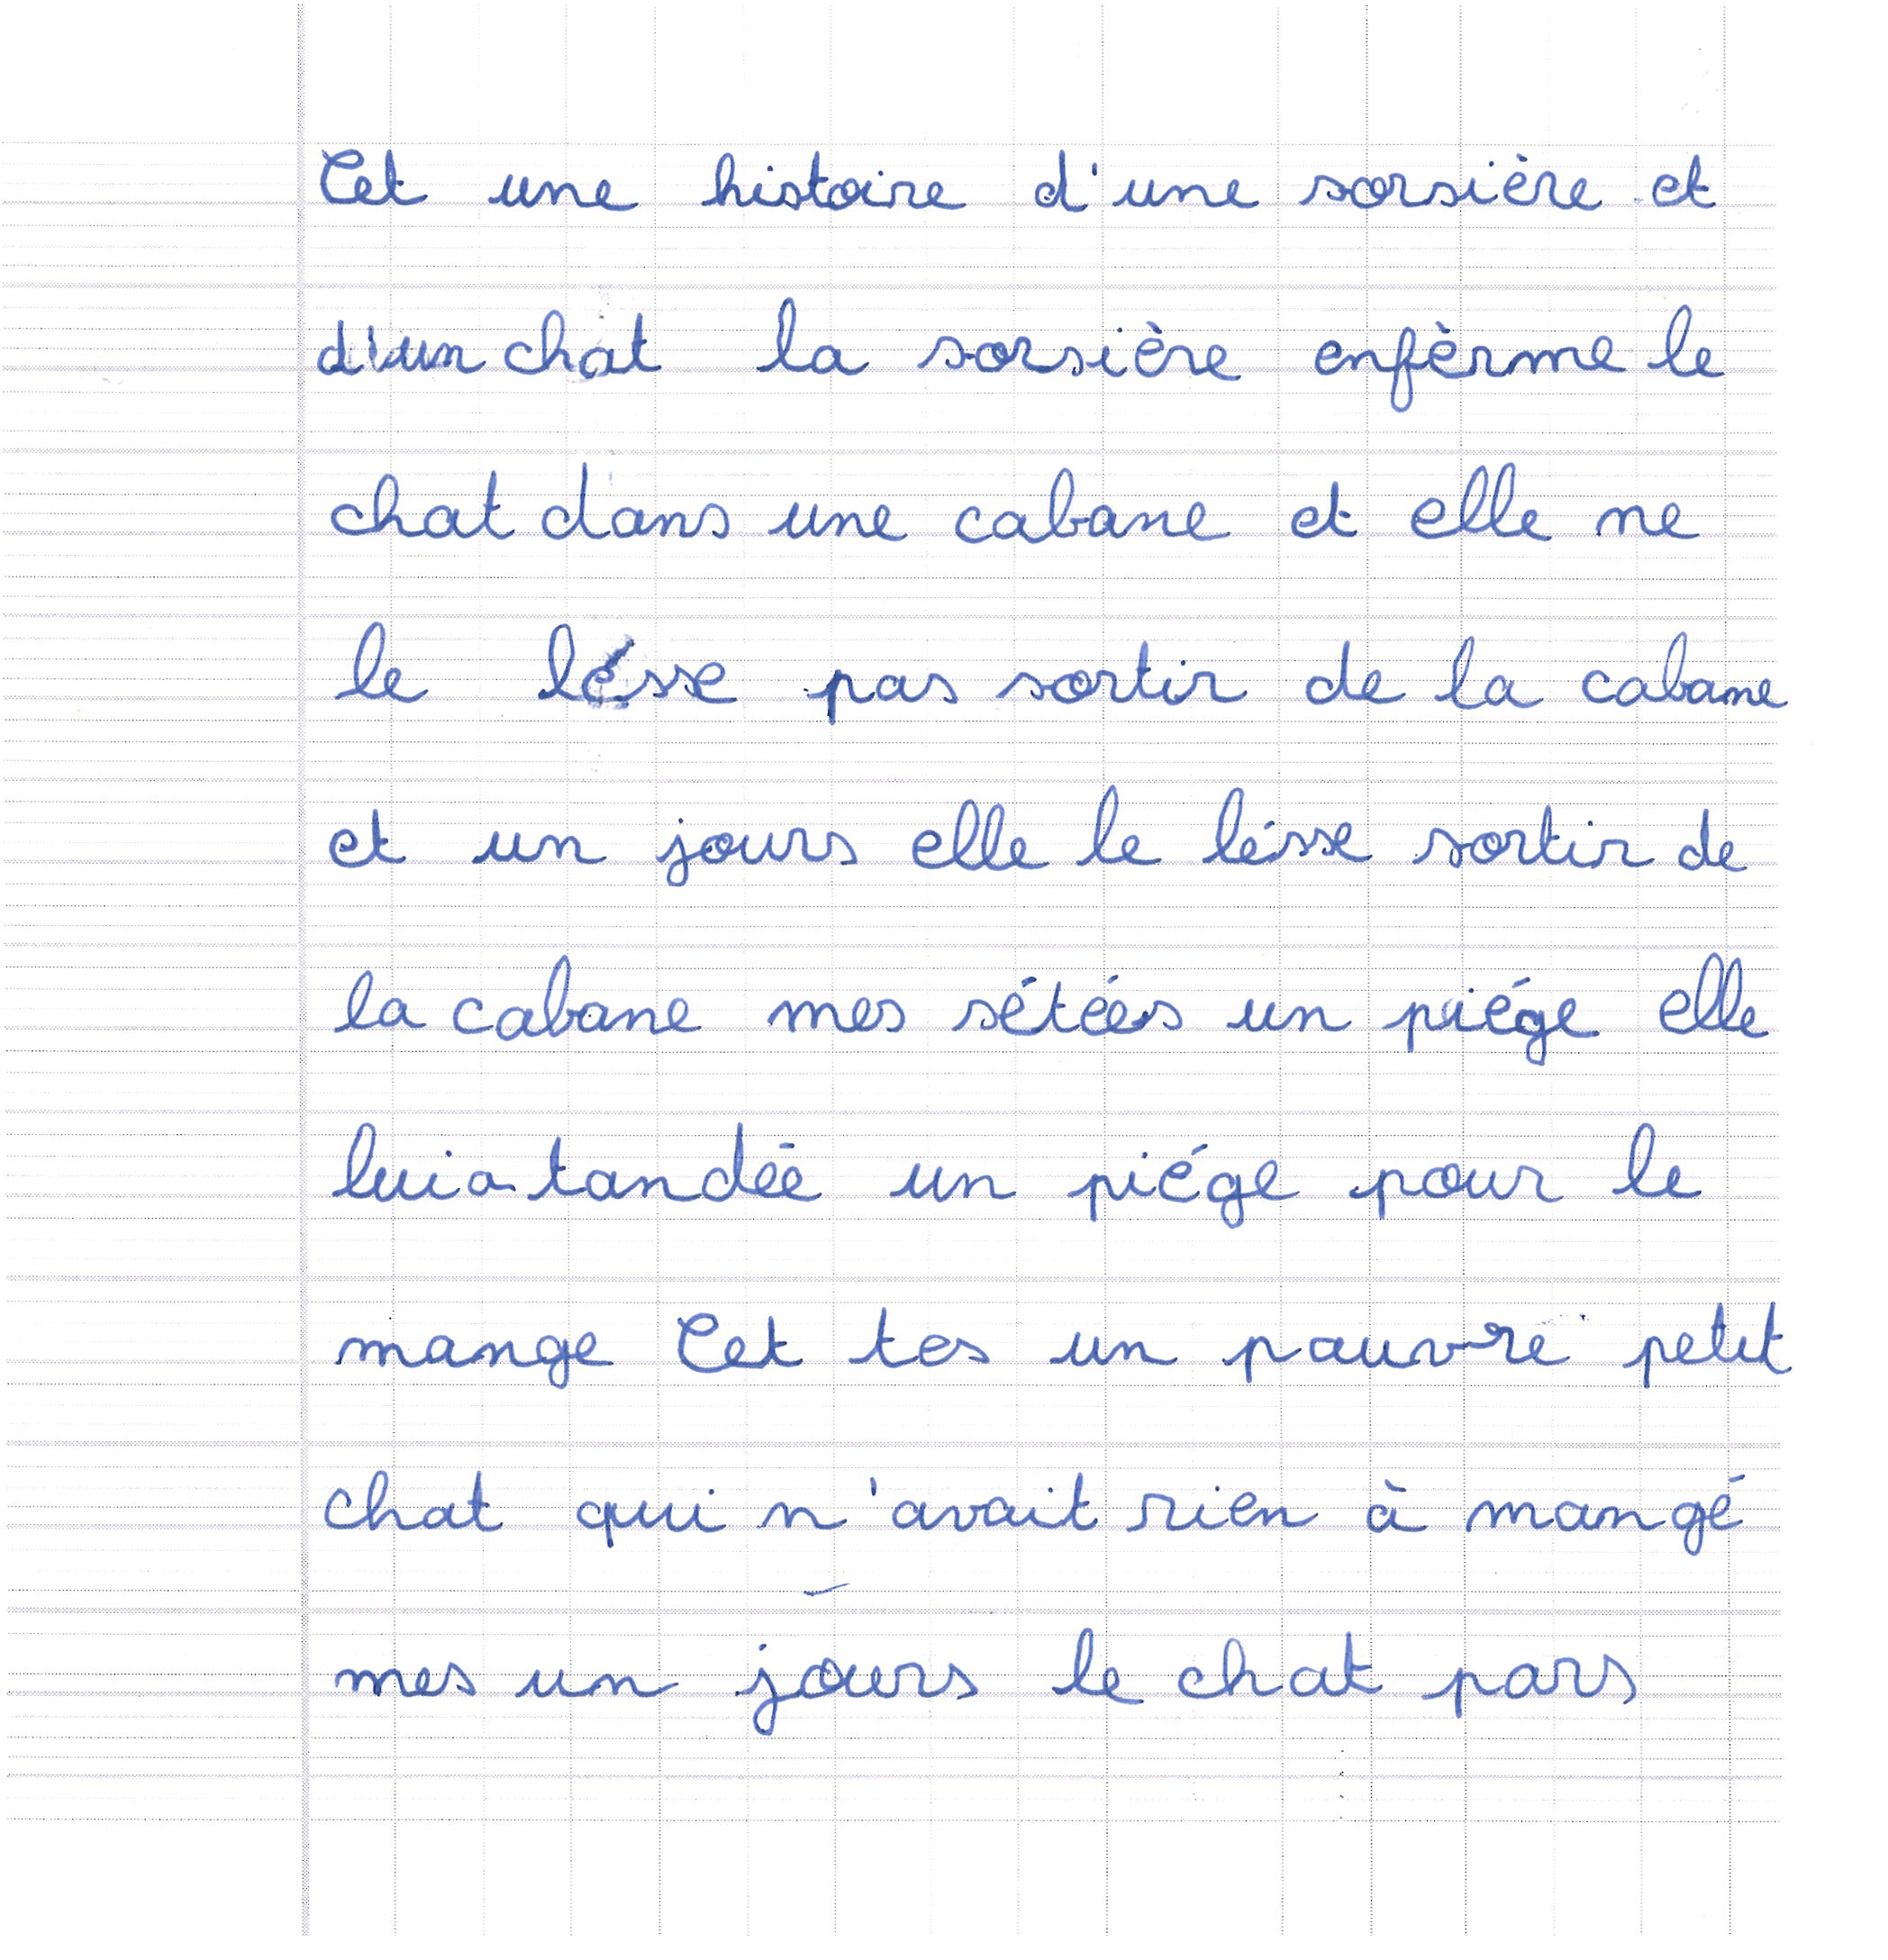 Cet une histoire d'une sorsière et
d'un chat la sorsière enfèrme le
chat dans une cabane et elle ne
le lésse pas sortir de la cabane
et un jours elle le lésse sortir de
la cabane mes sétées un piége elle
lui a tandée un piége pour le
mange Cet tes un pauvre petit
chat qui n'avait rien à mangé
mes un jours le chat pars